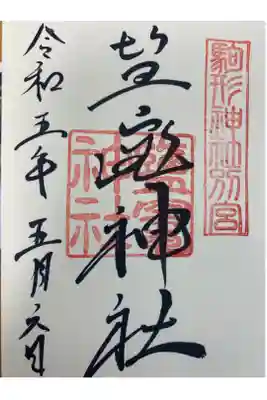 駒形神社別宮
塩竈神社
鹽竈
神社
令和五年五月六日